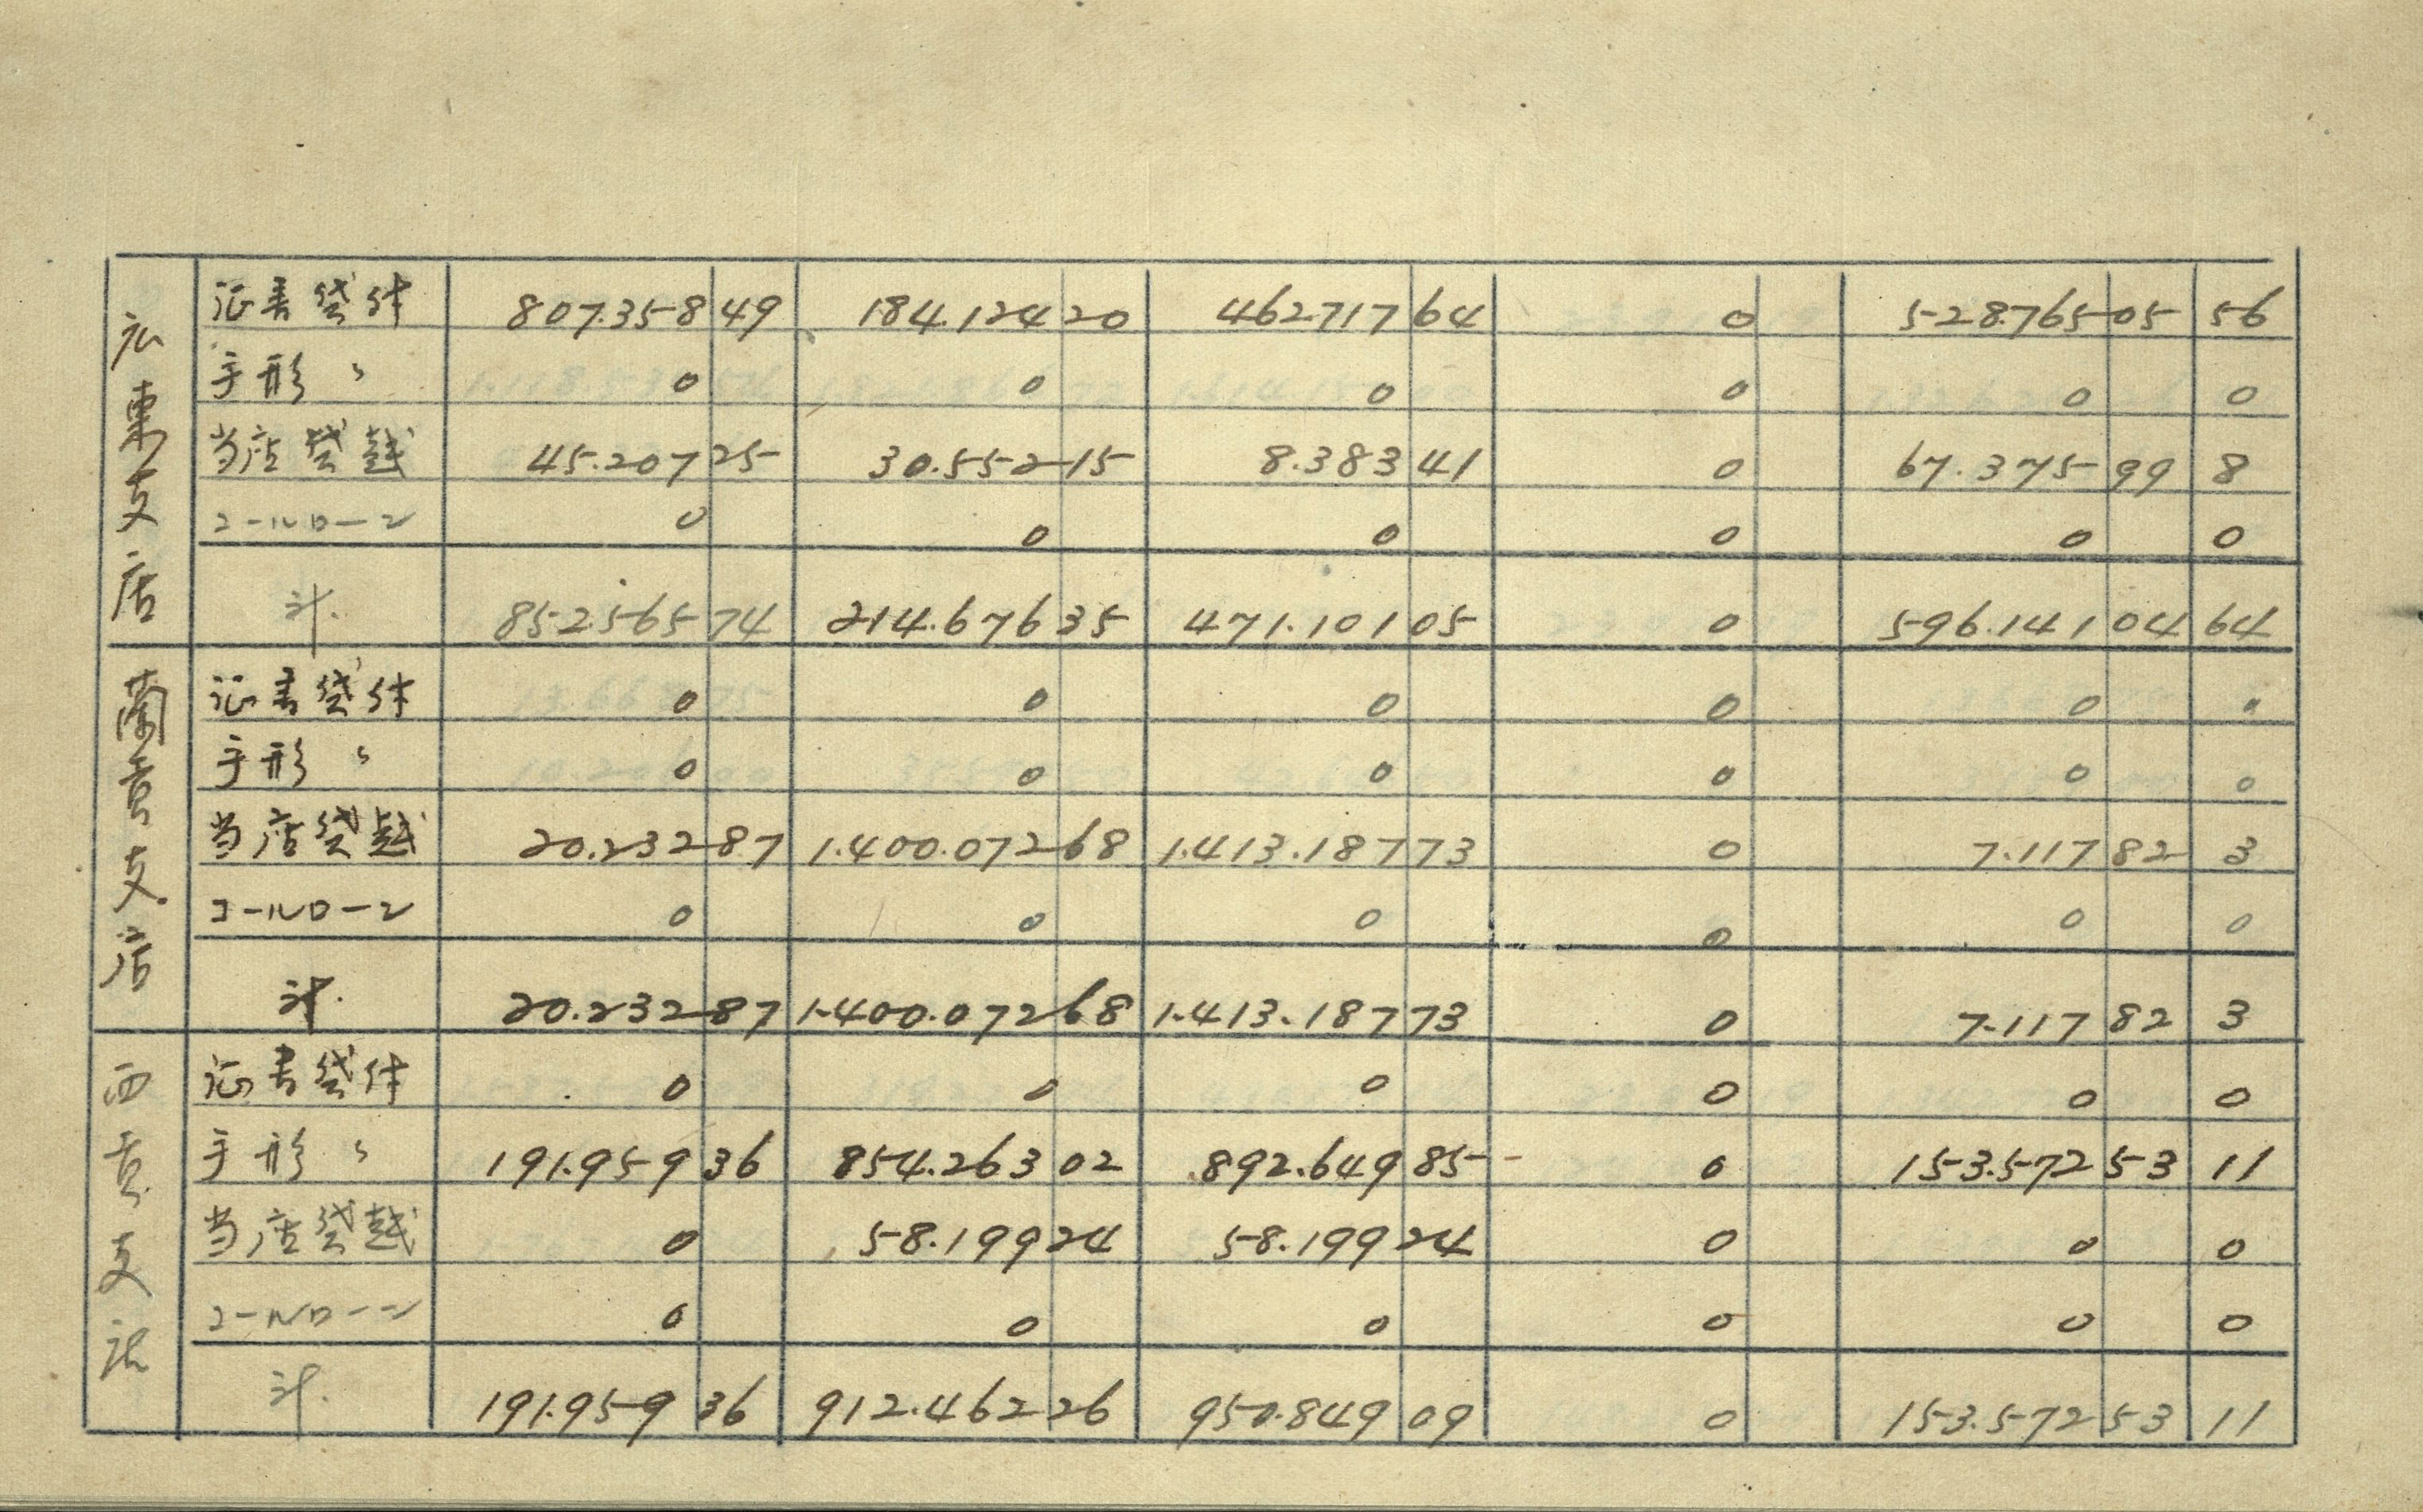 広東支店
証書貸付 807.358 49 184.124 20 462.717 64 0 528.765 05 56
手形 〃 0 0 0 0 0 0
当店貸越 45.207 25 30.552 15 8.383 41 0 67.375 99 8
コールローン 0 0 0 0 0 0
計. 852.565 74 214.676 35 471.101 05 0 596.141 04 64
蘭貢支店
証書貸付 0 0 0 0 0 0
手形 〃 0 0 0 0 0 0
当店貸越 20.232 87 1.400.072 68 1.413.187 73 0 7.117 82 3
コールローン 0 0 0 0 0 0
計. 20.232 87 1.400.072 68 1.413.187 73 0 7.117 82 3
西貢支
証書貸付 0 0 0 0 0 0
手形 〃 191.959 36 854.263 02 892.649 85 0 153.572 53 11
当店貸越 0 58.199 24 58.199 24 0 0 0
コールローン 0 0 0 0 0 0
計. 191.959 36 912.462 26 950.849 09 0 153.572 53 11